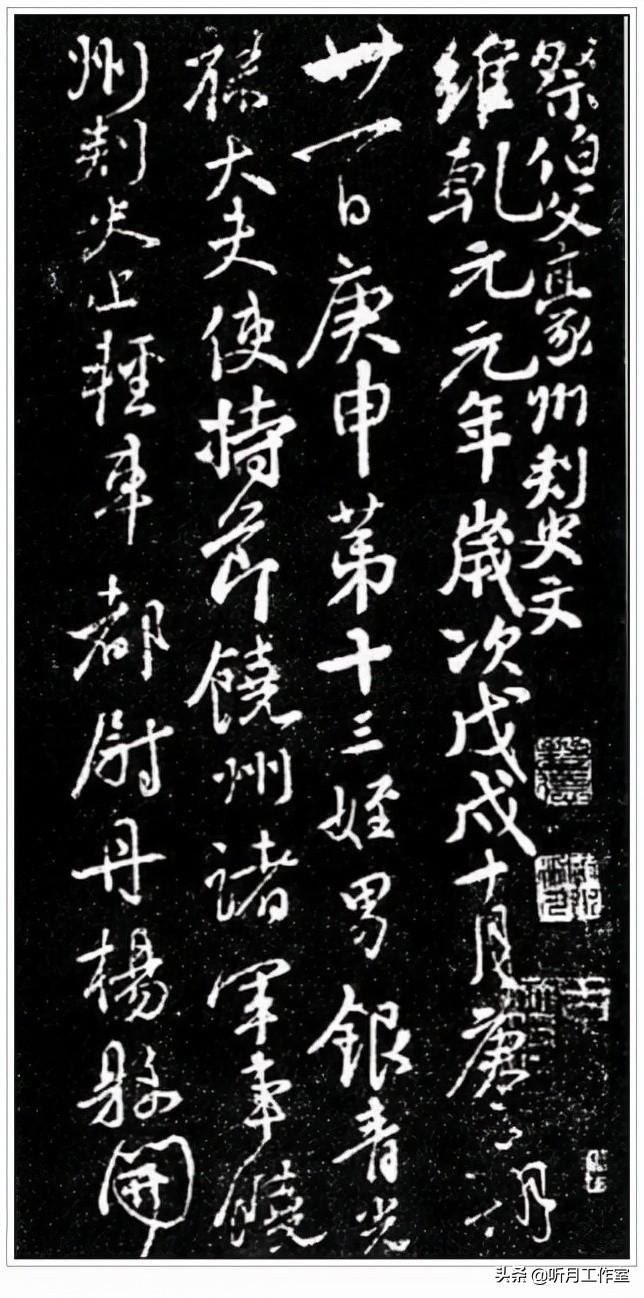 祭伯父豪州刺史文
維乾元元年歲次戊戌十月庚子朔
廿一日庚申第十三姪男銀青光
祿大夫使持節饒州諸軍事饒
州刺史上輕車都尉丹楊縣開
头条 @听月工作室